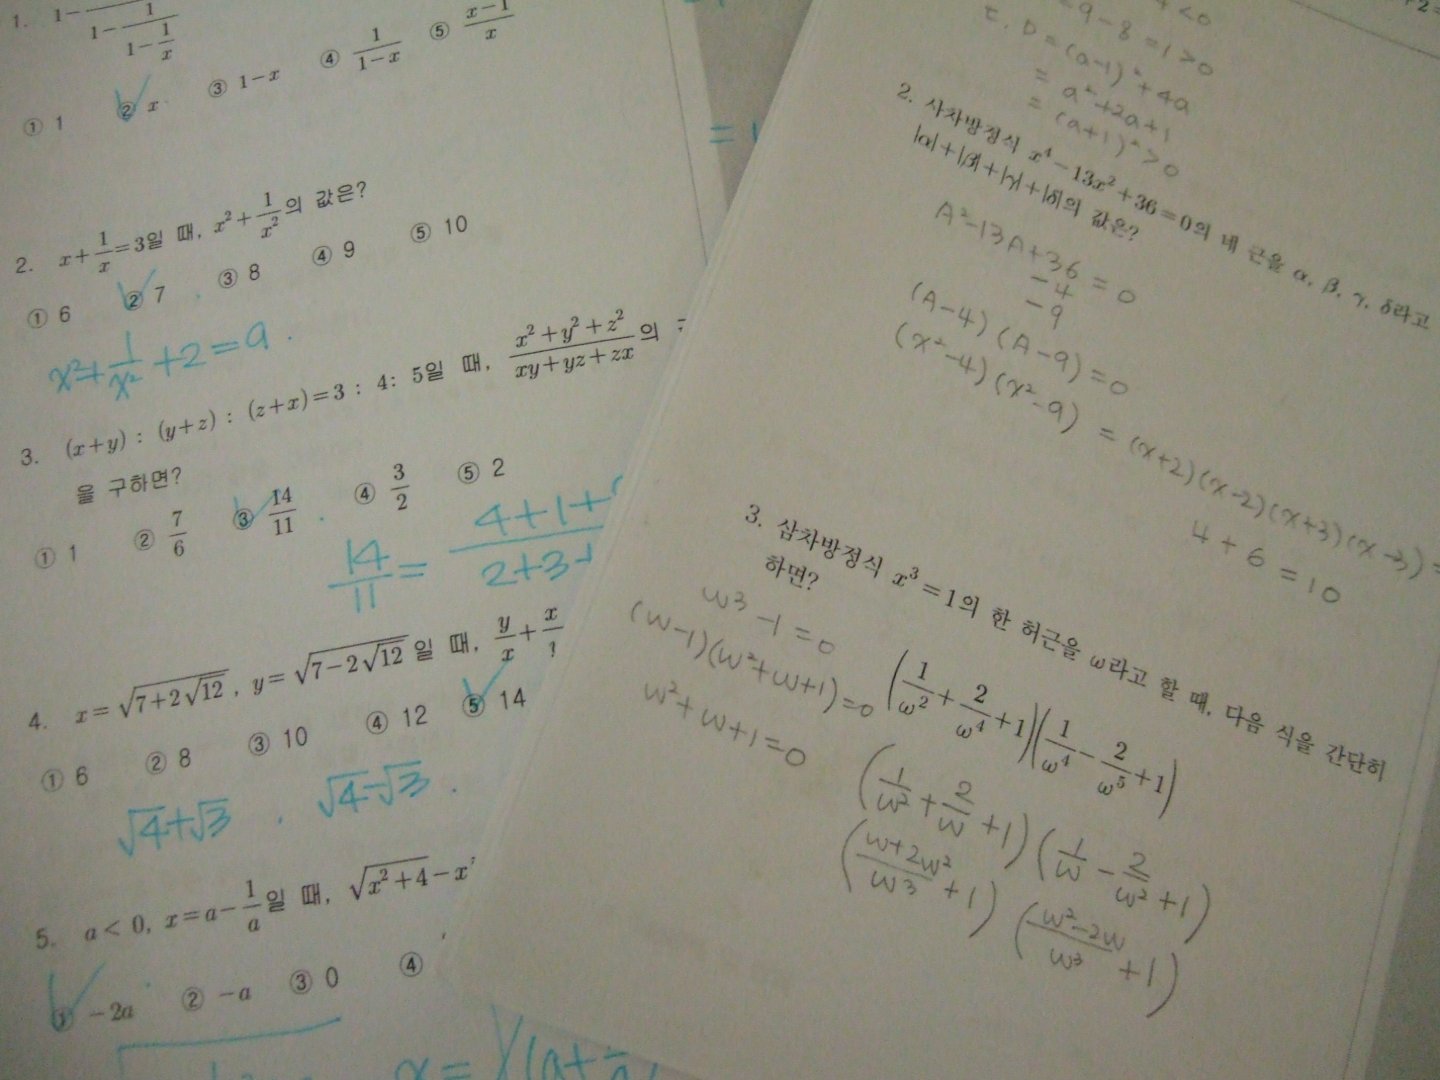 1. 1-
1
1-
1
1-
1
x
① 1 ② x ③ 1-x ④ 1/(1-x) ⑤ (x-1)/x
2. x+1/x=3일 때, x²+1/x²의 값은?
① 6 ② 7 ③ 8 ④ 9 ⑤ 10
x²+1/x²+2=9.
3. (x+y) : (y+z) : (z+x)=3 : 4 : 5일 때, (x²+y²+z²)/(xy+yz+zx)의
을 구하면?
① 1 ② 7/6 ③ 14/11 ④ 3/2 ⑤ 2
14/11 = (4+1+)/(2+3+)
4. x=√(7+2√12), y=√(7-2√12) 일 때, y/x+x/
① 6 ② 8 ③ 10 ④ 12 ⑤ 14
√4+√3 . √4-√3 .
5. a<0, x=a-1/a일 때, √(x²+4)-x
① -2a ② -a ③ 0 ④
<0
=9-8=1>0
D=(a-1)²+4a
=a²+2a+1
=(a+1)²>0
2. 사차방정식 x⁴-13x²+36=0의 네 근을 α, β, γ, δ라고
|α|+|β|+|γ|+|δ|의 값은?
A²-13A+36=0
-4
-9
(A-4)(A-9)=0
(x²-4)(x²-9) = (x+2)(x-2)(x+3)(x-3)=
4+6=10
3. 삼차방정식 x³=1의 한 허근을 ω라고 할 때, 다음 식을 간단히
하면?
w3-1=0
(w-1)(w²+w+1)=0
w²+w+1=0
(1/ω²+2/ω⁴+1)(1/ω⁴-2/ω⁵+1)
(1/w²+2/w+1)(1/w-2/w²+1)
((w+2w²)/w3+1)((w²-2w)/w³+1)